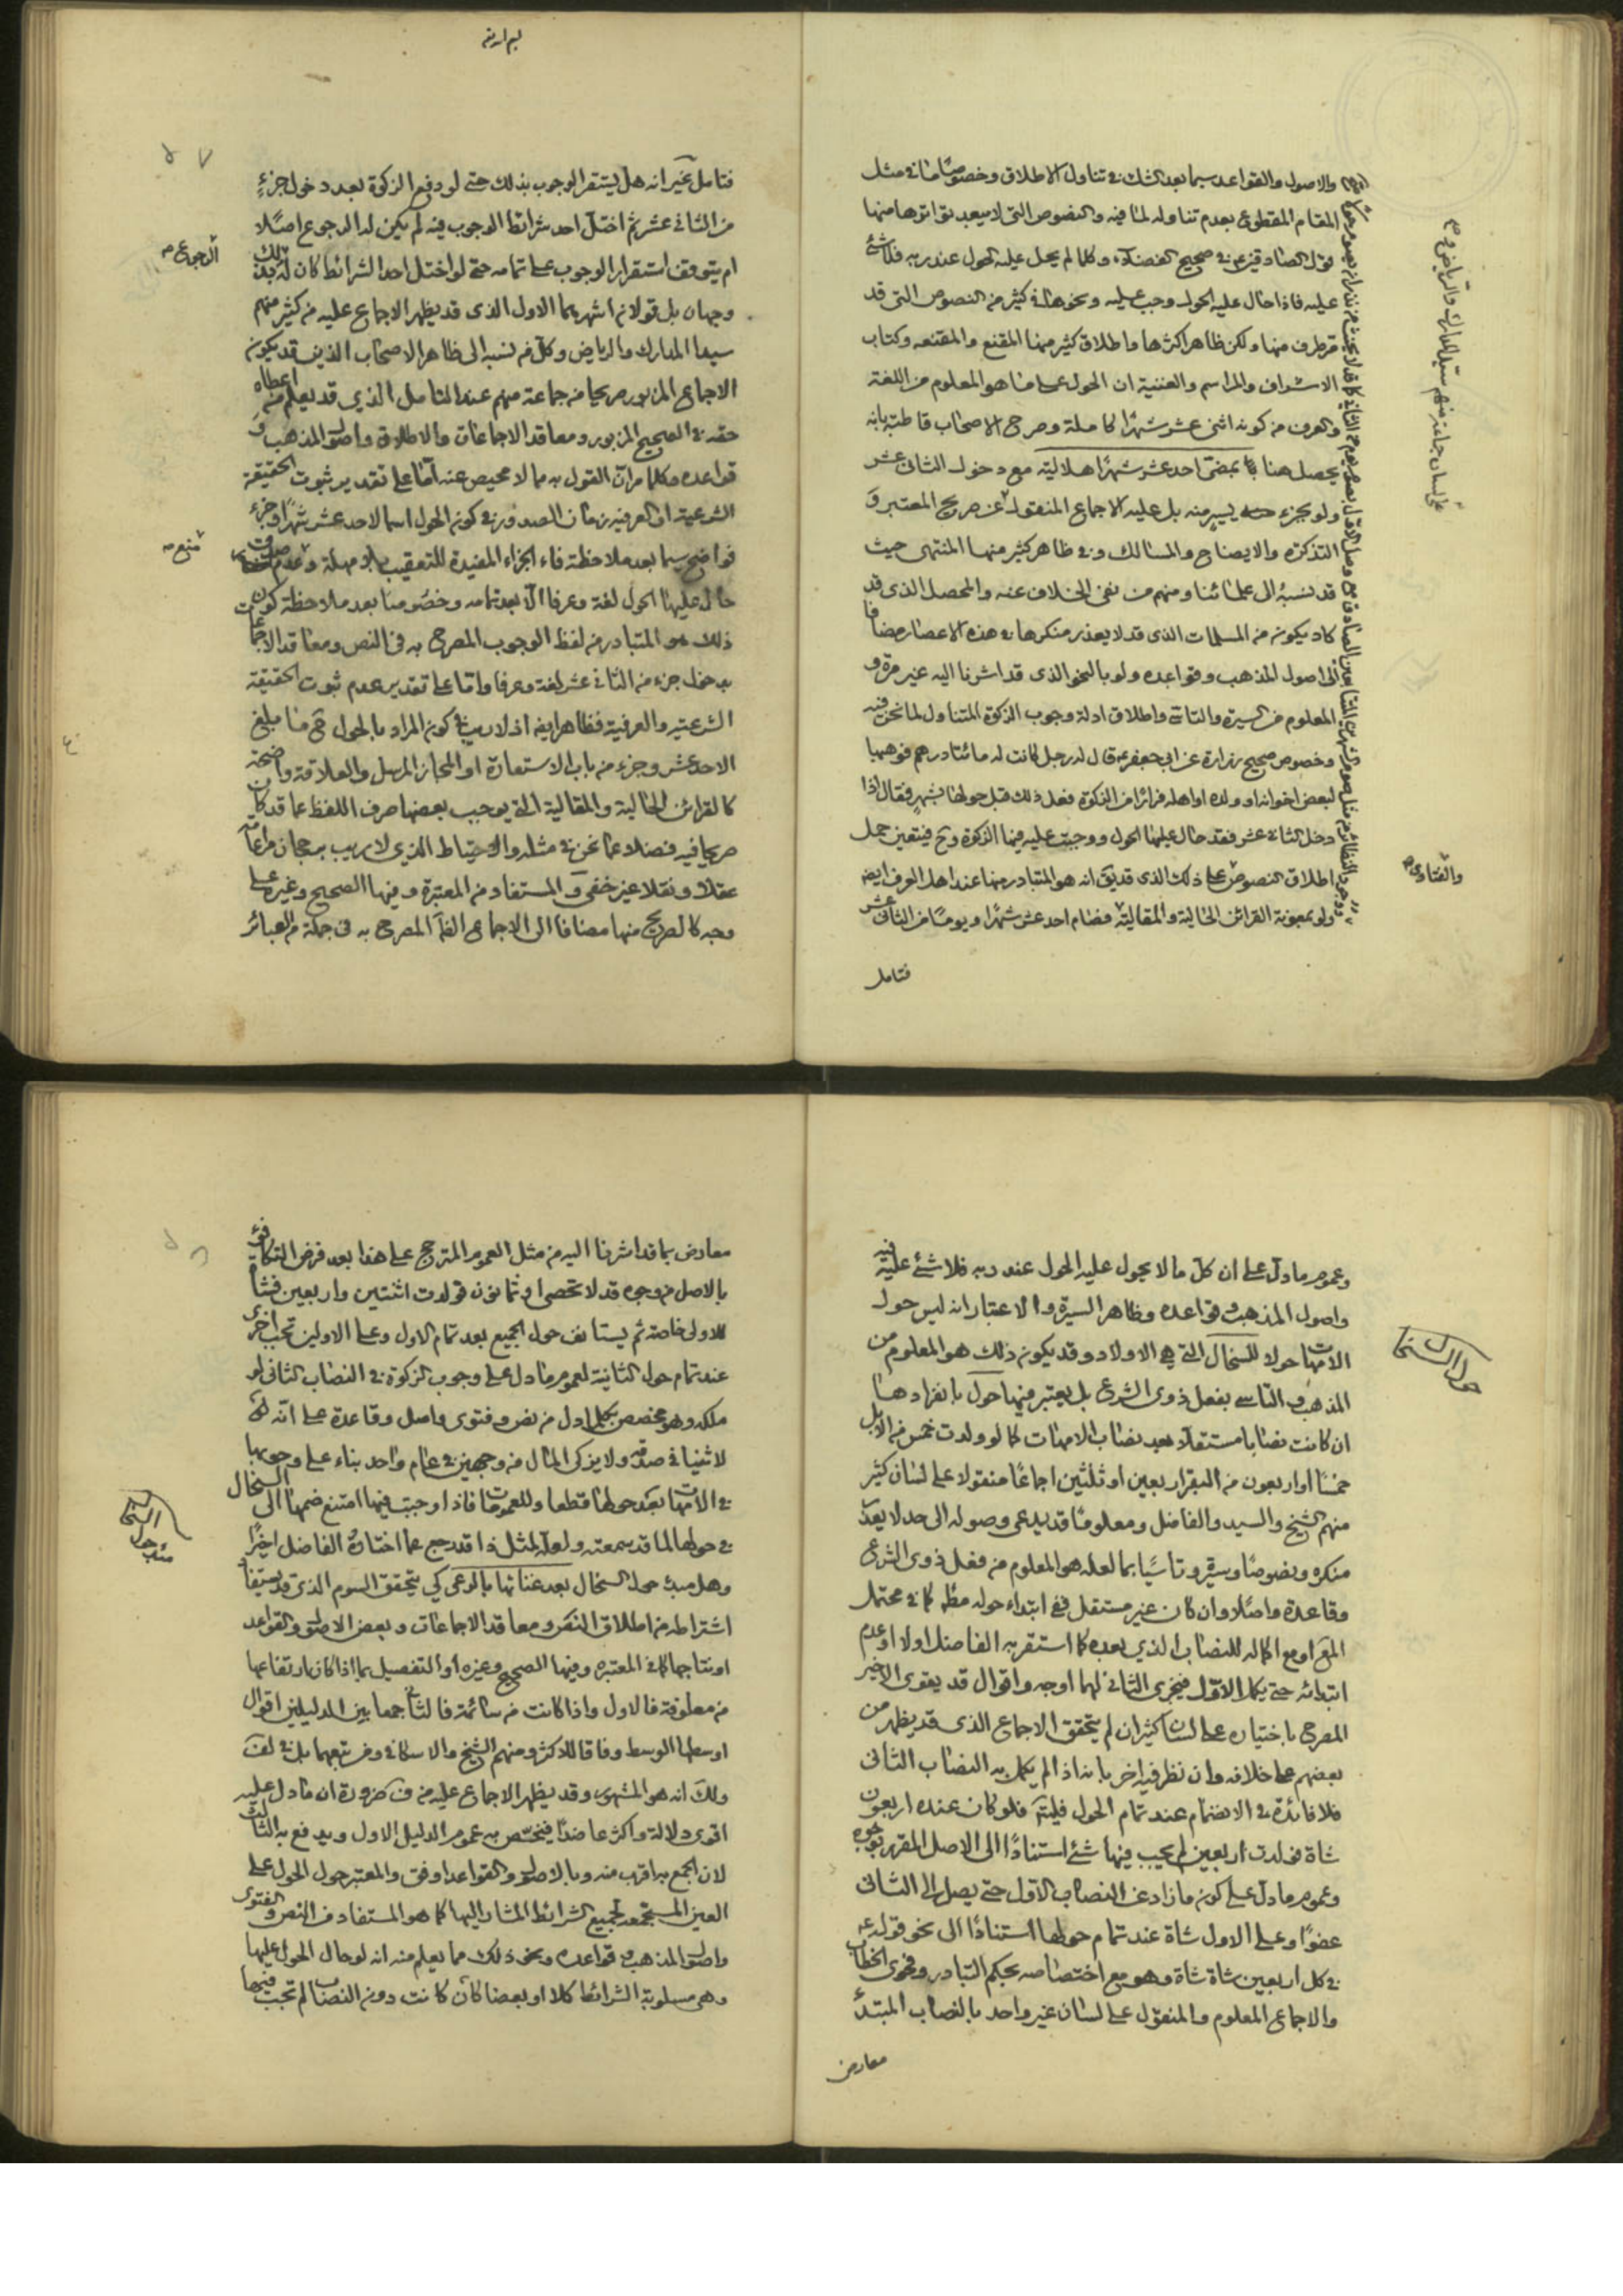 والاصول والقواعد سيما بعد الشك في تناول الاطلاق وخصوصا ما في مثل
المقام المقطوع بعدم تناوله لما فيه والنصوص التي لا يبعد تواترها منها
قول الصادقين ع في صحيح الفضلاء وكلما لم يحل عليه الحول عند ربه فلا شئ
عليه فاذا حال عليه الحول وجب عليه ونحوها في كثير من النصوص التي قد
مر طرف منها ولكن ظاهر اكثرها واطلاق كثير منها المقنع والمقنعه وكتاب
الاشراف والمراسم والغنية ان الحول على ما هو المعلوم من اللغة
والعرف من كونه اثنى عشر شهرا كاملة وصرح الاصحاب قاطبة بانه
يحصل هنا بمضى احد عشر شهرا هلالية مع دخول الثاني عشر
ولو بجزء يسير منه بل عليه الاجماع المنقول عن صريح المعتبر و
التذكرة والايضاح والمسالك وفي ظاهر كثير منها المنتهى حيث
قد نسبه الى علمائنا ومنهم من نفى الخلاف عنه والمحصل الذي قد
كاد يكون من المسلمات الذي قد لا يعذر منكرها في هذه الاعصار مضافا
الى اصول المذهب وقواعده ولو بالنحو الذي قد اشرنا اليه غير مرة و
المعلوم من السيرة والتاسي واطلاق ادلة وجوب الزكوة المتناول لما نحن فيه
وخصوص صحيح زرارة عن ابي جعفر ع قال له رجل كانت له مائتا درهم فوهبها
لبعض اخوانه او ولده او اهله فرارا من الزكوة فعل ذلك قبل حولها بشهر فقال اذا
دخل الثاني عشر فقد حال عليها الحول ووجبت عليه فيها الزكوة وح فيتعين حمل
اطلاق النصوص على ذلك الذي قد يق انه هو المتبادر منها عند اهل العرف ايضا
ولو بمعونة القرائن الحالية والمقالية فصام احد عشر شهرا ويوما من الثاني عشر
والفتاوى صح
فتامل
فتامل غير انه هل يستقر الوجوب بذلك حتى لو دفع الزكوة بعد دخول جزء
من الثاني عشر ثم اختل احد شرائط الوجوب فيه لم يكن له الرجوع اصلا
ام يتوقف استقرار الوجوب على تمامه حتى لو اختل احد الشرائط كان له ذلك
الرجوع صح
وجهان بل قولان اشهرهما الاول الذي قد يظهر الاجماع عليه من كثير منهم
سيما المدارك والرياض وكل من نسبه الى ظاهر الاصحاب الذين قد يكون
الاجماع المزبور صريحا من جماعة منهم عند التامل الذي قد يعلم من اعطاه
حقه في الصحيح المزبور ومعاقد الاجماعات والاطلاق واصول المذهب و
قواعده وكلما مر ان القول به مما لا محيص عنه اما على تقدير ثبوت الحقيقة
الشرعية او العرفية زمان الصدور في كون الحول اسما لاحد عشر شهرا وجزء
فواضح سيما بعد ملاحظة فاء الجزاء المفيدة للتعقيب بلا مهلة وعدم صدق
حال عليها الحول لغة وعرفا الا بعد تمامه وخصوصا بعد ملاحظة كون
ذلك هو المتبادر من لفظ الوجوب المصرح به في النص ومعاقد الاجماعات
بدخول جزء من الثاني عشر لغة وعرفا واما على تقدير عدم ثبوت الحقيقة
الشرعية والعرفية فظاهر ايضا اذ لا ريب في كون المراد بالحول في ما بلغ
الاحد عشر وجزء من باب الاستعارة او المجاز المرسل والعلاقة واضحة
كالقرائن الحالية والمقالية التي يوجب بعضها صرف اللفظ عما قد كان
صريحا فيه فضلا عما نحن في مثله والاحتياط الذي لا ريب برجحان مراعاته
عقلا ونقلا غير خفى والمستفاد من المعتبرة وفيها الصحيح وغيره على
وجه كالصريح منها مضافا الى الاجماع المصرح به في جملة من العبائر
وعموم ما دل على ان كل ما لا يحول عليه الحول عند ربه فلا شئ عليه فيه
واصول المذهب وقواعده وظاهر السيرة والاعتبار انه ليس حول
الامهات حولا للسخال التي هي الاولاد وقد يكون ذلك هو المعلوم من
المذهب والتاسي بفعل ذوي الشرع بل يعتبر فيها حول بانفرادها
حول السخال
ان كانت نصابا مستقلا بعد نصاب الامهات كما لو ولدت خمس من الابل
خمسا او اربعون من البقر اربعين او ثلثين اجماعا منقولا على لسان كثير
منهم الشيخ والسيد والفاضل ومعلوما قد يدعى وصوله الى حد لا يعذر
منكره ونصوصا وسيرة وتاسيا بما لعله هو المعلوم من فعل ذوي الشرع
وقاعدة واصلا وان كان غير مستقل ففي ابتداء حوله مطلقا كما في محتمل
المع او مع اكماله للنصاب الذي بعده كما استقر به الفاضل اولا او عدم
ابتدائه حتى يكمل الاول فيجزي الثاني لهما اوجه واقوال قد يقوى الاخير
المصرح باختياره على لسان كثير ان لم يتحقق الاجماع الذي قد يظهر من
بعضهم على خلافه وان نظر فيه اخر بانه اذا لم يكمل به النصاب الثاني
فلا فائدة في الانضمام عند تمام الحول فليتم فلو كان عنده اربعون
شاة فولدت اربعين لم يجب فيها شئ استنادا الى الاصل المقرر بوجوه
وعموم ما دل على كون ما زاد عن النصاب الاول حتى يصل الى الثاني
عفوا وعلى الاول شاة عند تمام حولها استنادا الى نحو قوله ع
في كل اربعين شاة شاة وهو مع اختصاصه بحكم التبادر وفحوى الخطاب
والاجماع المعلوم والمنقول على لسان غير واحد بالنصاب المبتدأ
معارض
معارض بما قد اشرنا اليه من مثل العموم المترجح على هذا بعد فرض التكافؤ
بالاصل من وجوه قد لا تحصى او ثمانون فولدت اثنتين واربعين فشاتان
للاولى خاصة ثم يستانف حول الجميع بعد تمام الاول وعلى الاولين تجب اخرى
عند تمام حول الثانية لعموم ما دل على وجوب الزكوة في النصاب الثاني لو
ملكه وهو مخصص بكلما دل من نص وفتوى واصل وقاعدة على انه
لا ثنيا في صدقة ولا يزكى المال من وجهين في عام واحد بناء على وجوبها
في الامهات بعد حولها قطعا وللعمومات فاذا وجبت فيها امتنع ضمها الى السخال
في حولها لما قد سمعته ولعله لمثل ذا قد رجع عما اختاره الفاضل اخيرا
وهل مبدء حول السخال بعد غنائها بالرعى كي يتحقق السوم الذي قد يستفاد
اشتراطه من اطلاق النص ومعاقد الاجماعات وبعض الاصول والقواعد
او نتاجها كما في المعتبرة وفيها الصحيح وغيره او التفصيل بما اذا كان ارتفاعها
من معلوفة فالاول واذا كانت من سائمة فالثاني جمعا بين الدليلين اقوال
اوسطها الوسط وفاقا للاكثر ومنهم الشيخ والاسكافي ومن تبعهما بل في لف
ولك انه هو المشهور وقد يظهر الاجماع عليه من ف ضرورة ان ما دل عليه
اقوى دلالة واكثر عاضدا فيختص به عموم الدليل الاول ويدفع به الثالث
لان الجمع به اقرب منه وبالاصول والقواعد اوفق والمعتبر حول الحول على
العين المستجمعة لجميع الشرائط المشار اليها كما هو المستفاد من النص والفتوى
واصول المذهب وقواعده ونحو ذلك مما يعلم منه انه لو حال الحول عليها
وهي مسلوبة الشرائط كلا او بعضا كان كانت دون النصاب لم تجب فيها